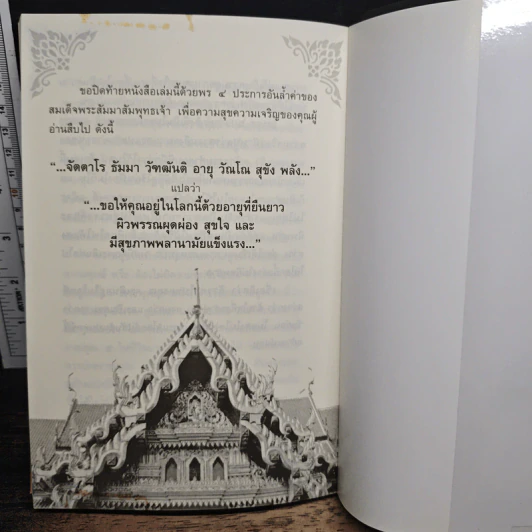 ขอปิดท้ายหนังสือเล่มนี้ด้วยพร ๔ ประการอันล้ำค่าของ
สมเด็จพระสัมมาสัมพุทธเจ้า เพื่อความสุขความเจริญของคุณผู้
อ่านสืบไป ดังนี้
“...จัตตาโร ธัมมา วัฑฒันติ อายุ วัณโณ สุขัง พลัง...”
แปลว่า
“...ขอให้คุณอยู่ในโลกนี้ด้วยอายุที่ยืนยาว
ผิวพรรณผุดผ่อง สุขใจ และ
มีสุขภาพพลานามัยแข็งแรง...”